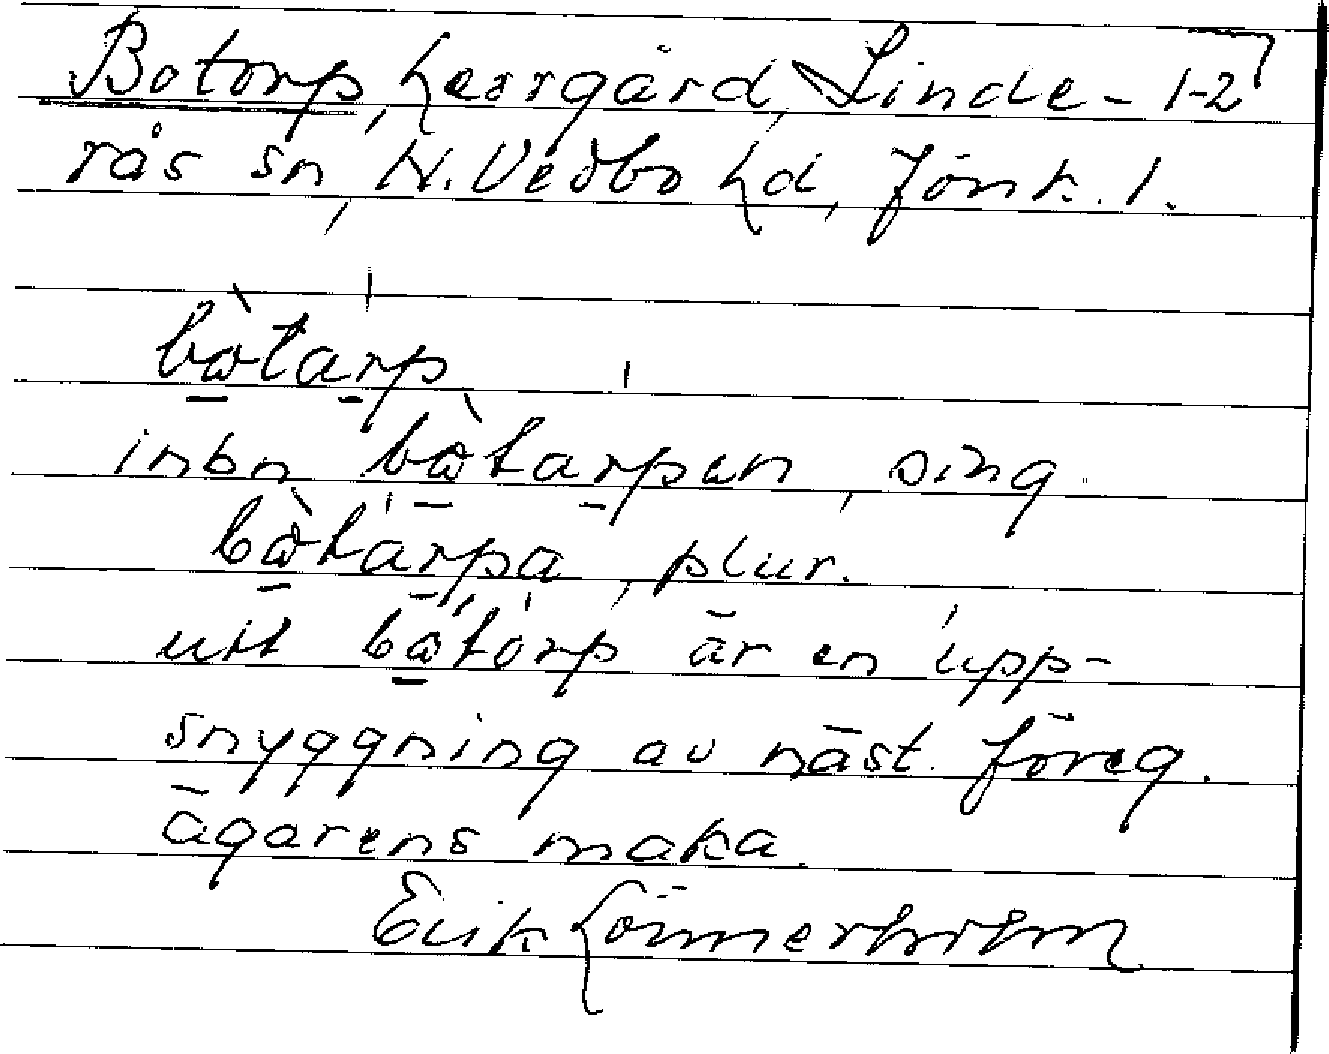 Botorp, herrgård, Linde- 1-2
rås sn, N. Vedbo hd, Jönk. l.
bò̱ta̍ṟp
inbn bò̱ta̍ṟpen, sing.
bò̱ta̍ṟpa, plur.
utt bo̱to̍rp är en upp-
snyggning av näst. föreg.
ägarens maka.
Erik Lönnerholm